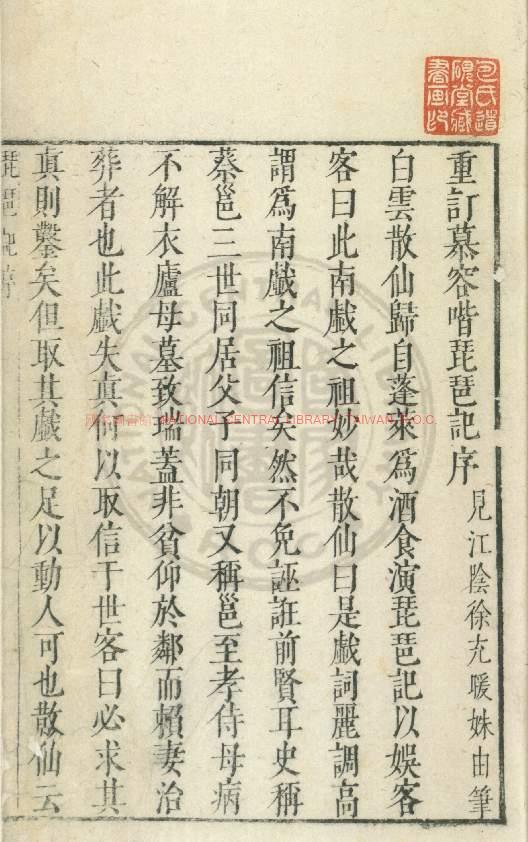 重訂慕容喈琵琶記序 見江陰徐充暖姝由筆
白雲散仙歸自蓬萊為酒食演琵琶記以娛客
客曰此南戲之祖妙哉散仙曰是戲詞麗調高
謂為南戲之祖信矣然不免誣誑前賢耳史稱
蔡邕三世同居父子同朝又稱邕至孝侍母病
不解衣廬母墓致瑞蓋非貧仰於鄰而賴妻治
葬者也此戲失真何以取信于世客曰必求其
真則鑿矣但取其戲之足以動人可也散仙云
琵琶記序
包氏遺硯堂藏書画印
國家圖書館 NATIONAL CENTRAL LIBRARY, TAIWAN, R.O.C.